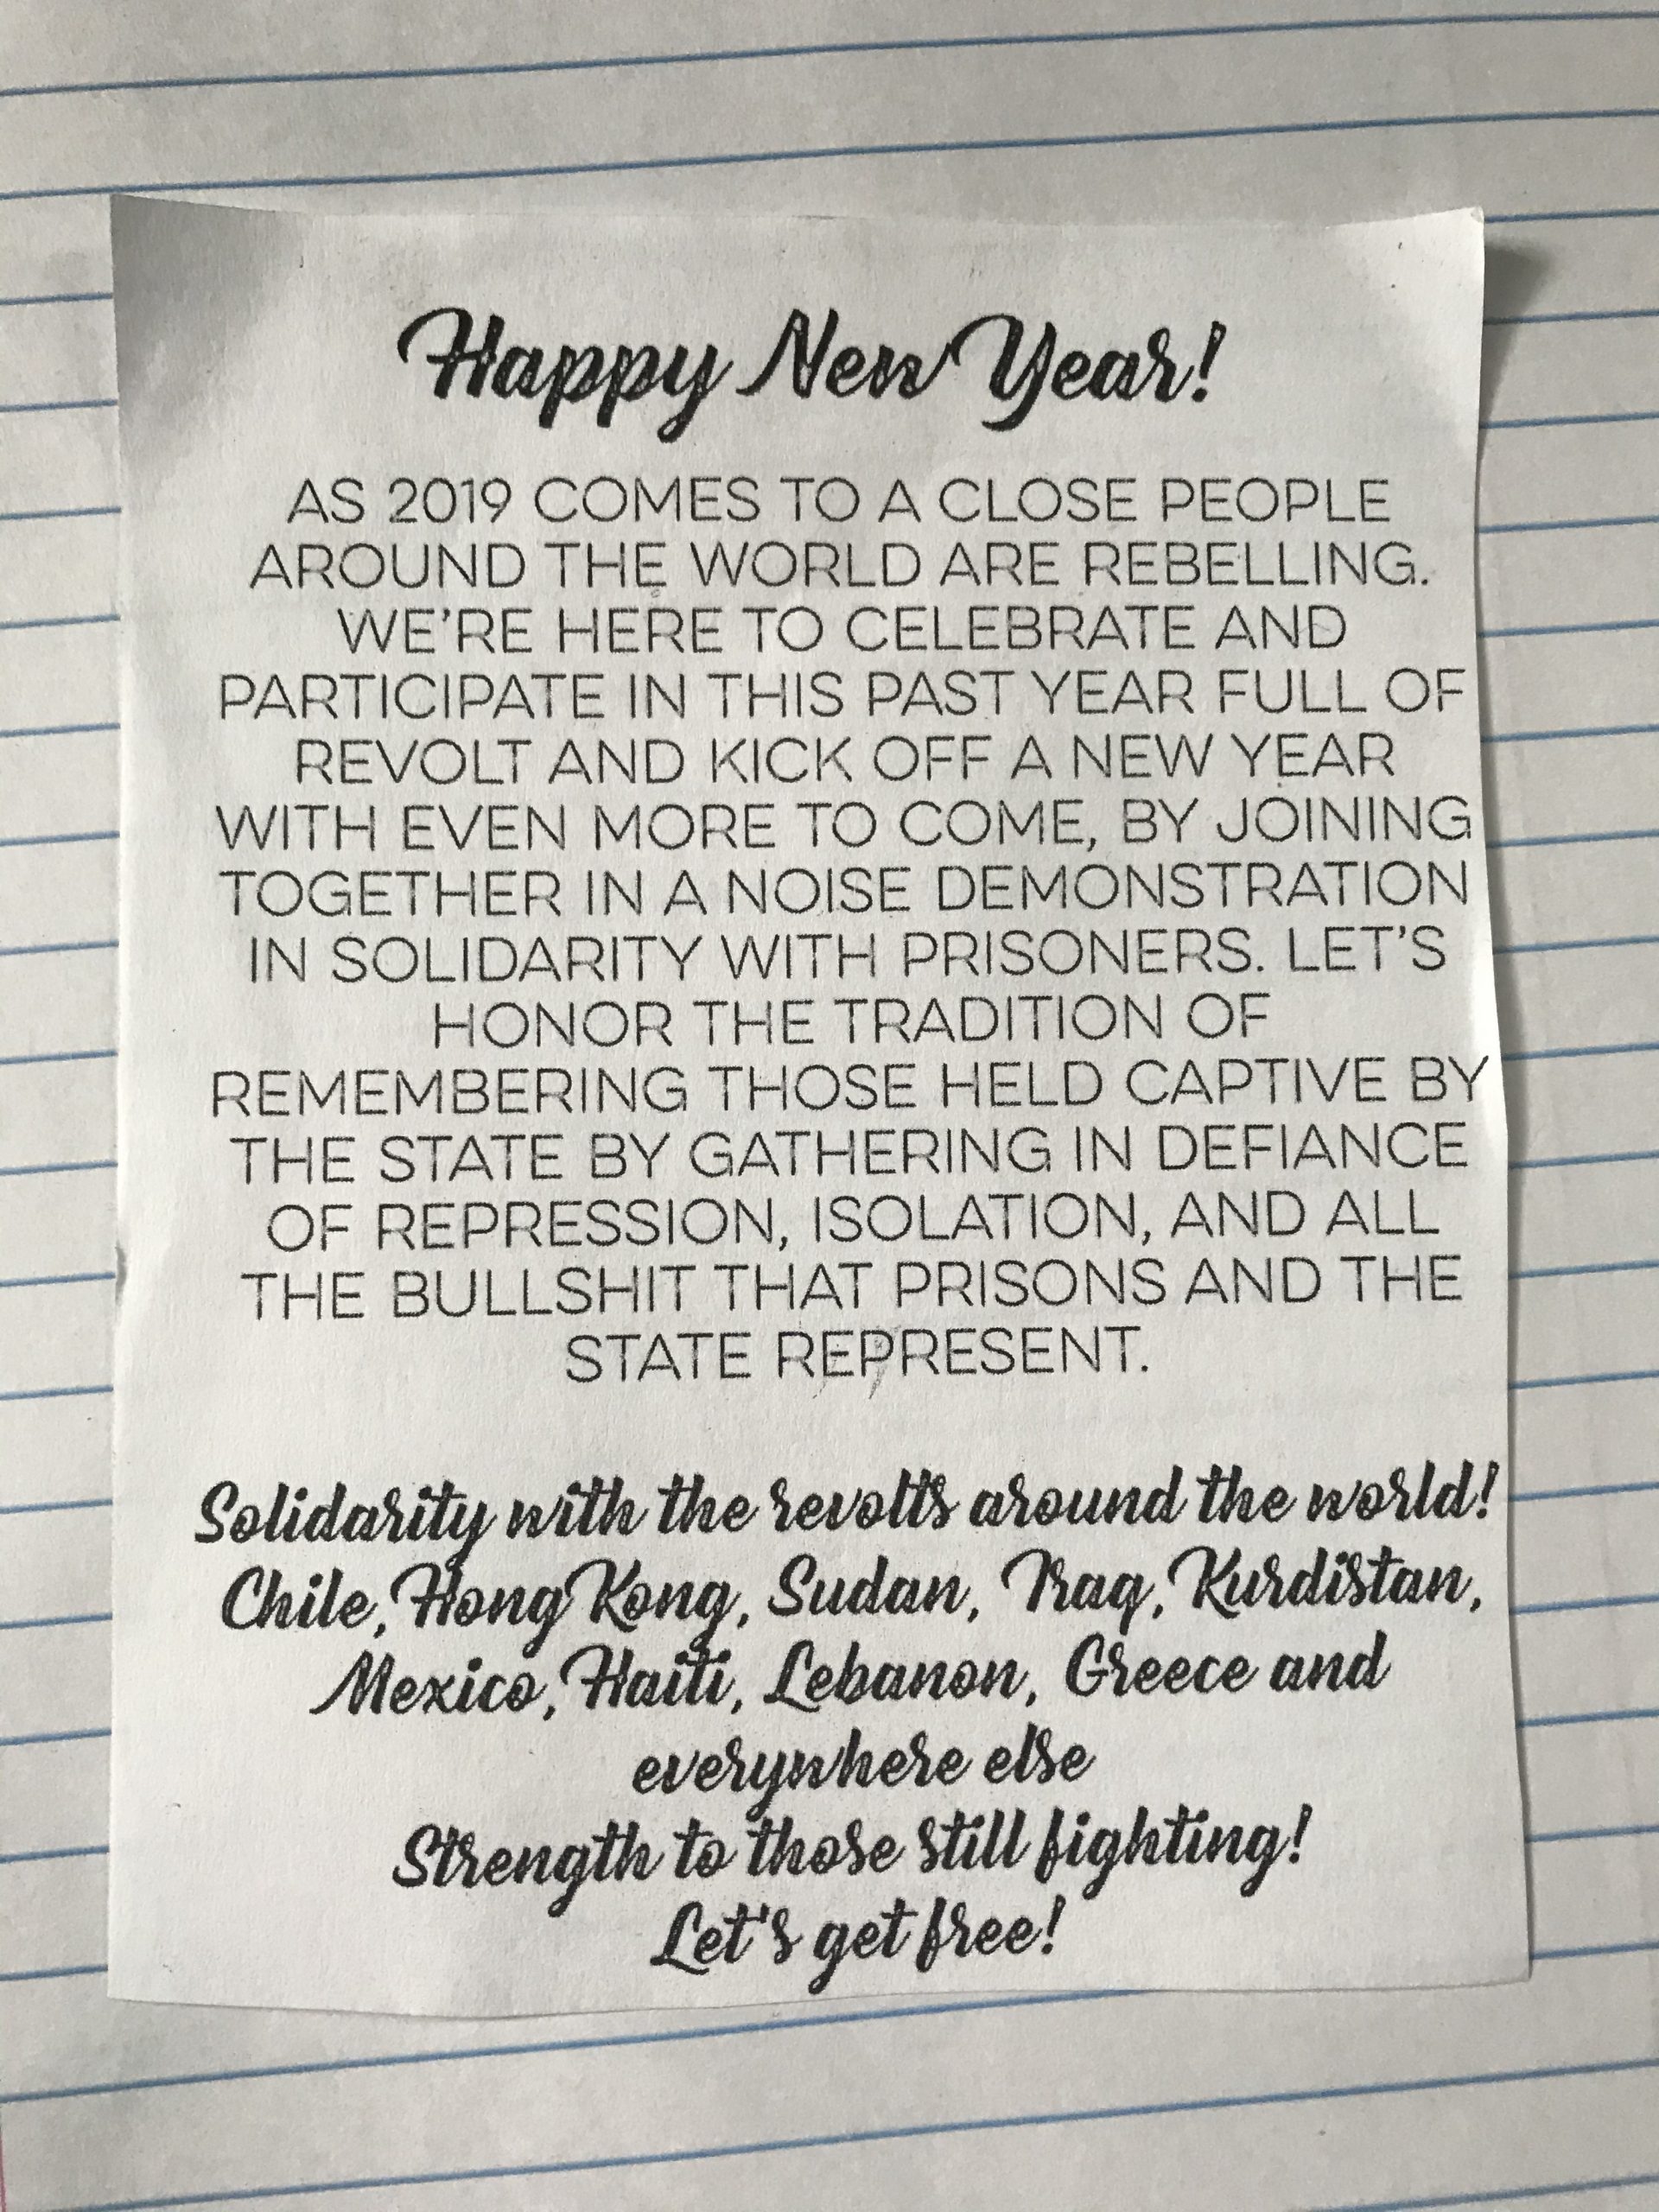 Happy New Year!
AS 2019 COMES TO A CLOSE PEOPLE
AROUND THE WORLD ARE REBELLING.
WE'RE HERE TO CELEBRATE AND
PARTICIPATE IN THIS PAST YEAR FULL OF
REVOLT AND KICK OFF A NEW YEAR
WITH EVEN MORE TO COME, BY JOINING
TOGETHER IN A NOISE DEMONSTRATION
IN SOLIDARITY WITH PRISONERS. LET'S
HONOR THE TRADITION OF
REMEMBERING THOSE HELD CAPTIVE BY
THE STATE BY GATHERING IN DEFIANCE
OF REPRESSION, ISOLATION, AND ALL
THE BULLSHIT THAT PRISONS AND THE
STATE REPRESENT.
Solidarity with the revolts around the world!
Chile, Hong Kong, Sudan, Iraq, Kurdistan,
Mexico, Haiti, Lebanon, Greece and
everywhere else
Strength to those still fighting!
Let's get free!